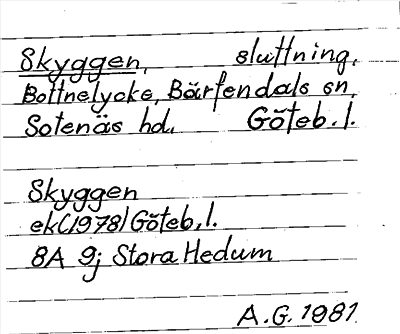 Skyggen, sluttning,
Bottnelycke, Bärfendals sn,
Sotenäs hd. Göteb. l.
Skyggen
ek(1978) Göteb. l.
8A 9j Stora Hedum
A.G. 1981